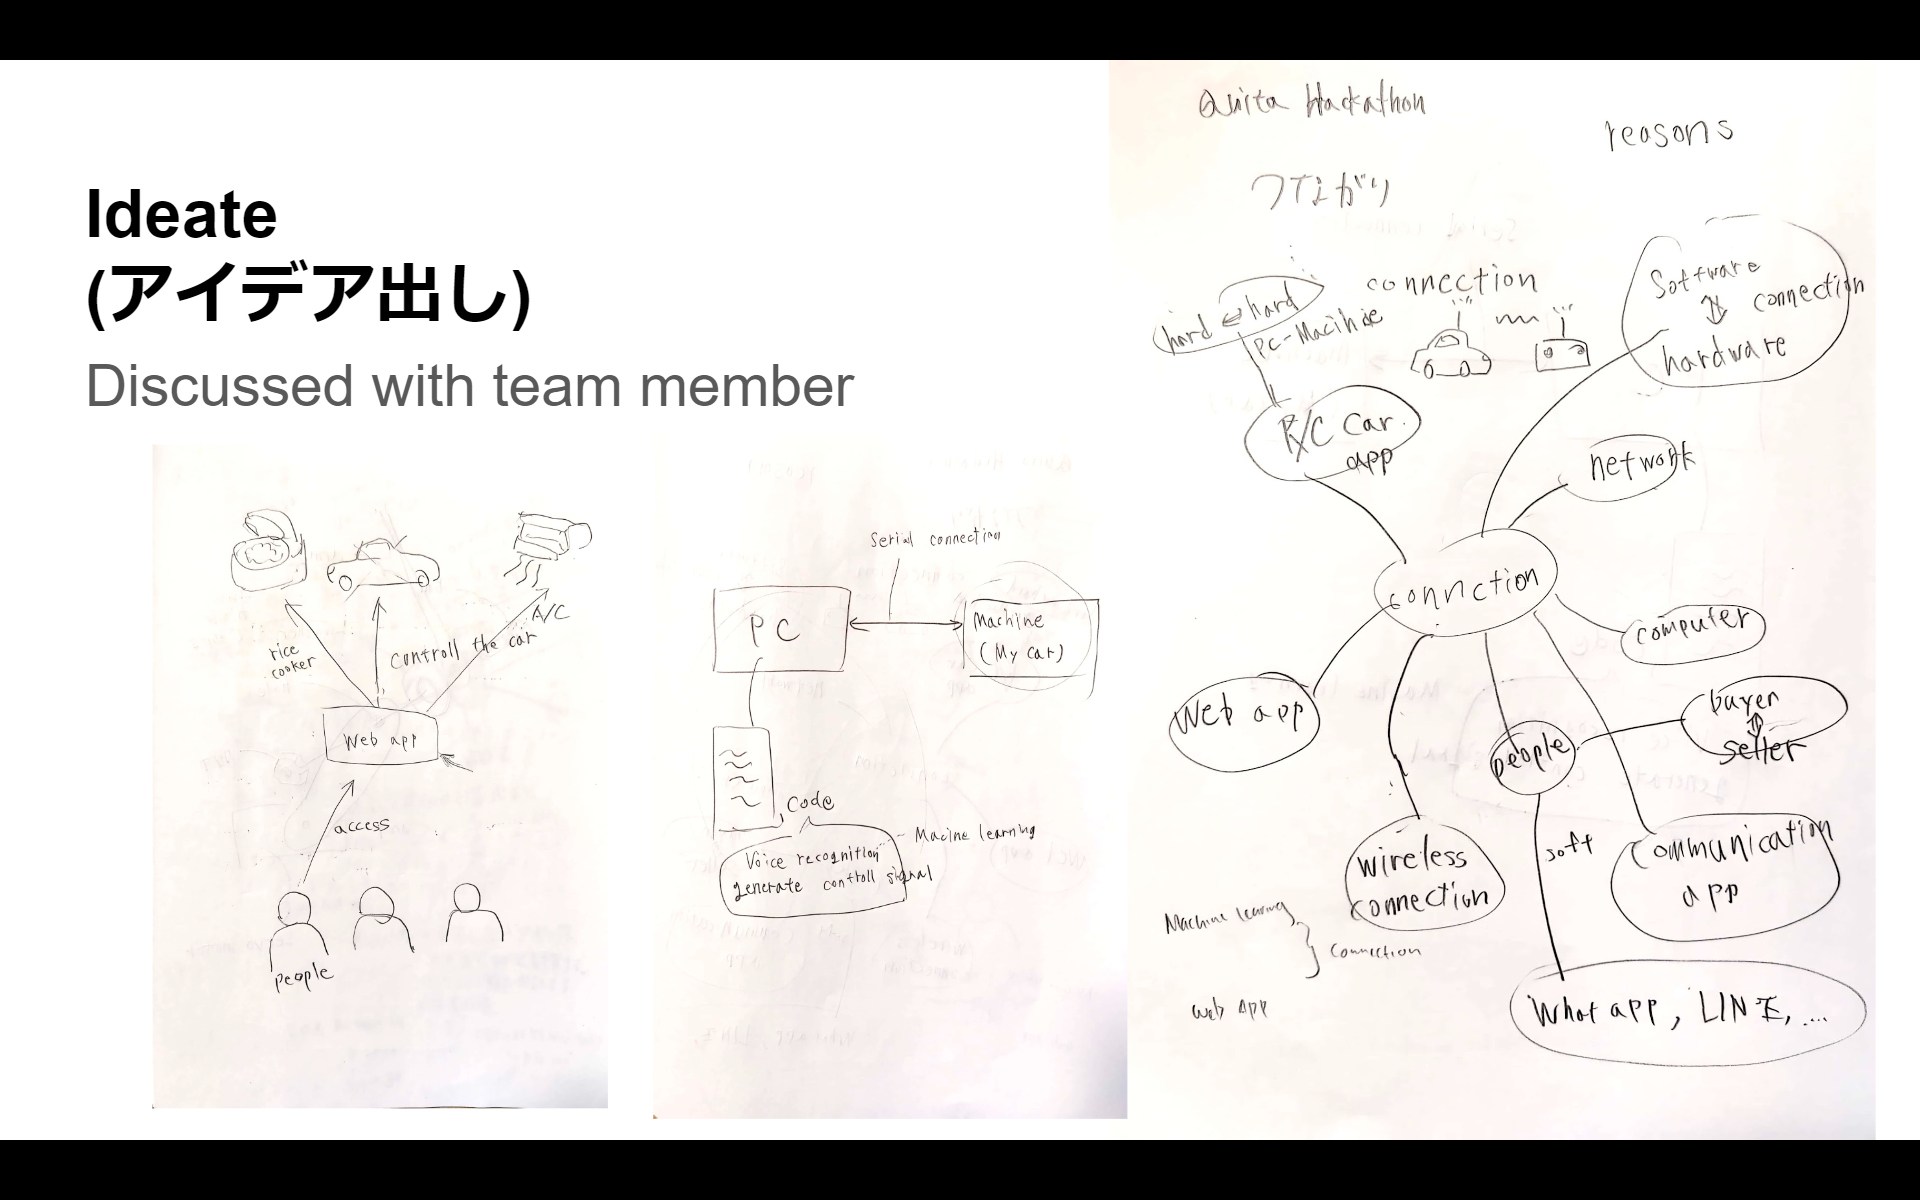 Ideate
(アイデア出し)
Discussed with team member
rice
cooker
controll the car
A/C
Web app
access
people
Serial connection
PC
Machine
(My car)
code
Macine learning
Voice recognition
generate controll signal
Quita Hackathon
reasons
つながり
connection
hard ⇔ hard
PC-Macihine
Software
⇕ connection
hardware
R/C Car
app
network
connction
computer
Web app
people
buyer
⇕
seller
wireless
connection
soft
communication
app
Machine learning
connection
web APP
What app, LINE, ...